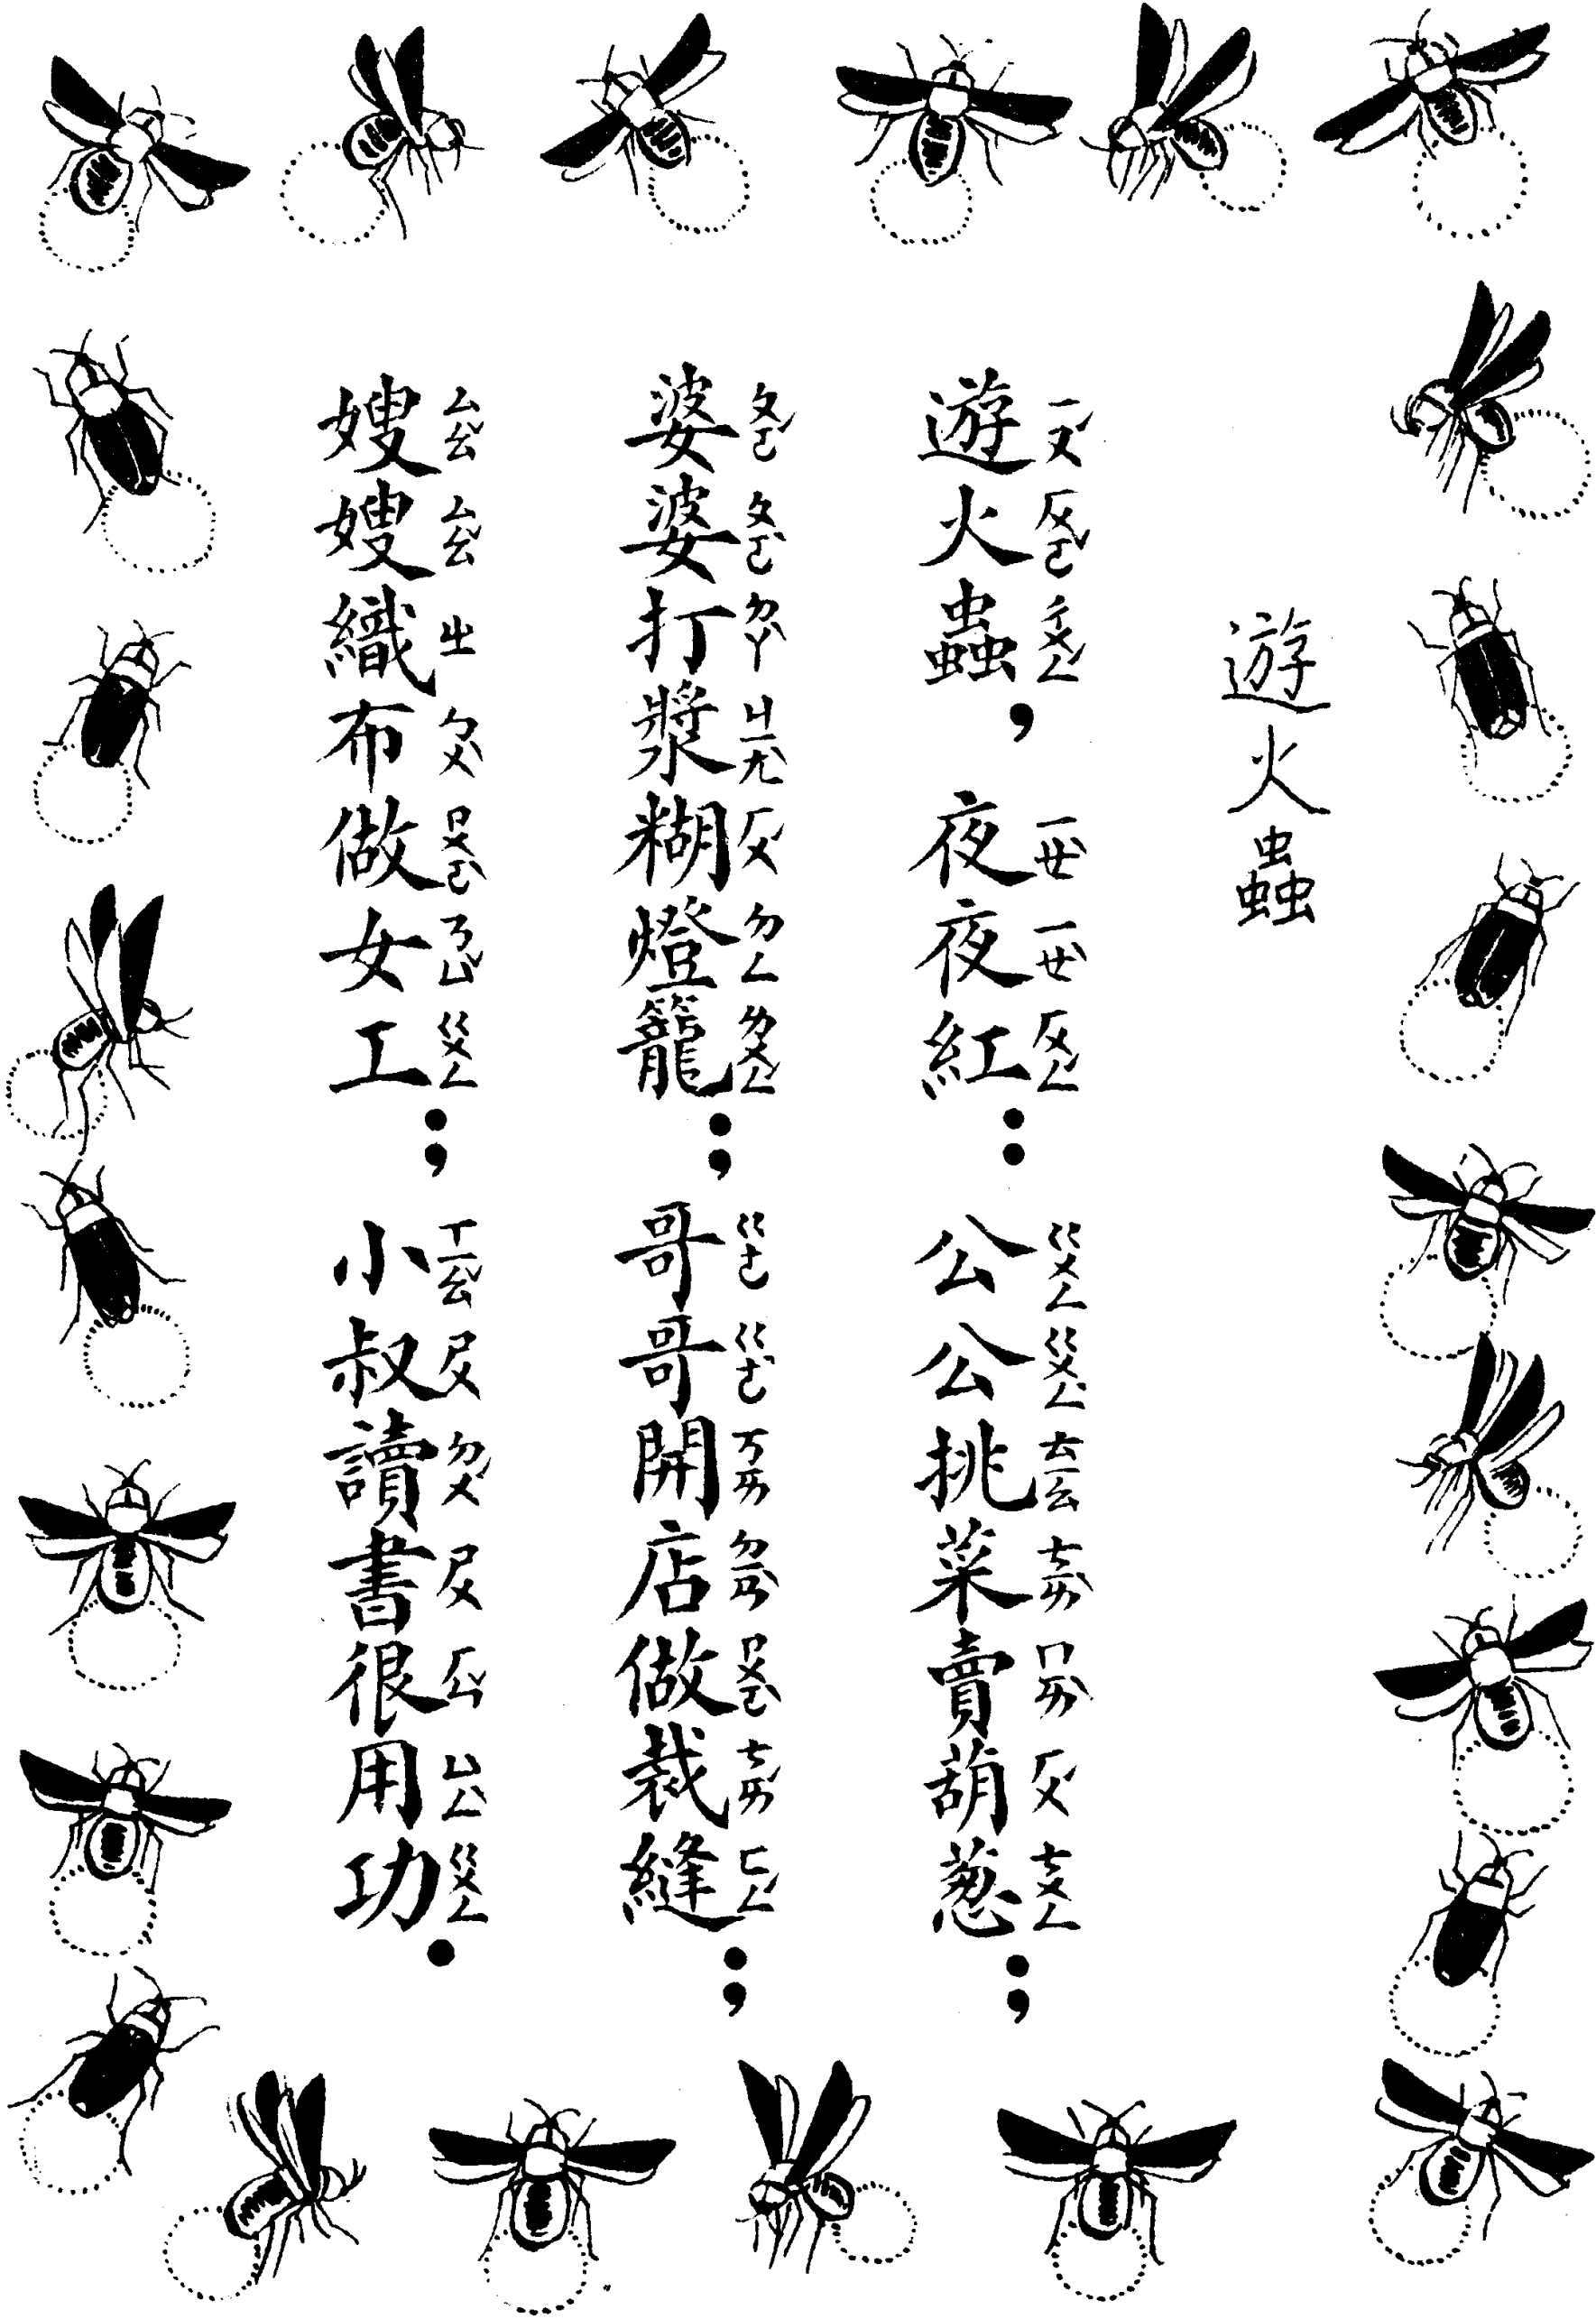 遊火蟲
遊火蟲，夜夜紅：公公挑菜賣葫葱；
婆婆打漿糊燈籠；哥哥開店做裁縫；
嫂嫂織布做女工；小叔讀書很用功．